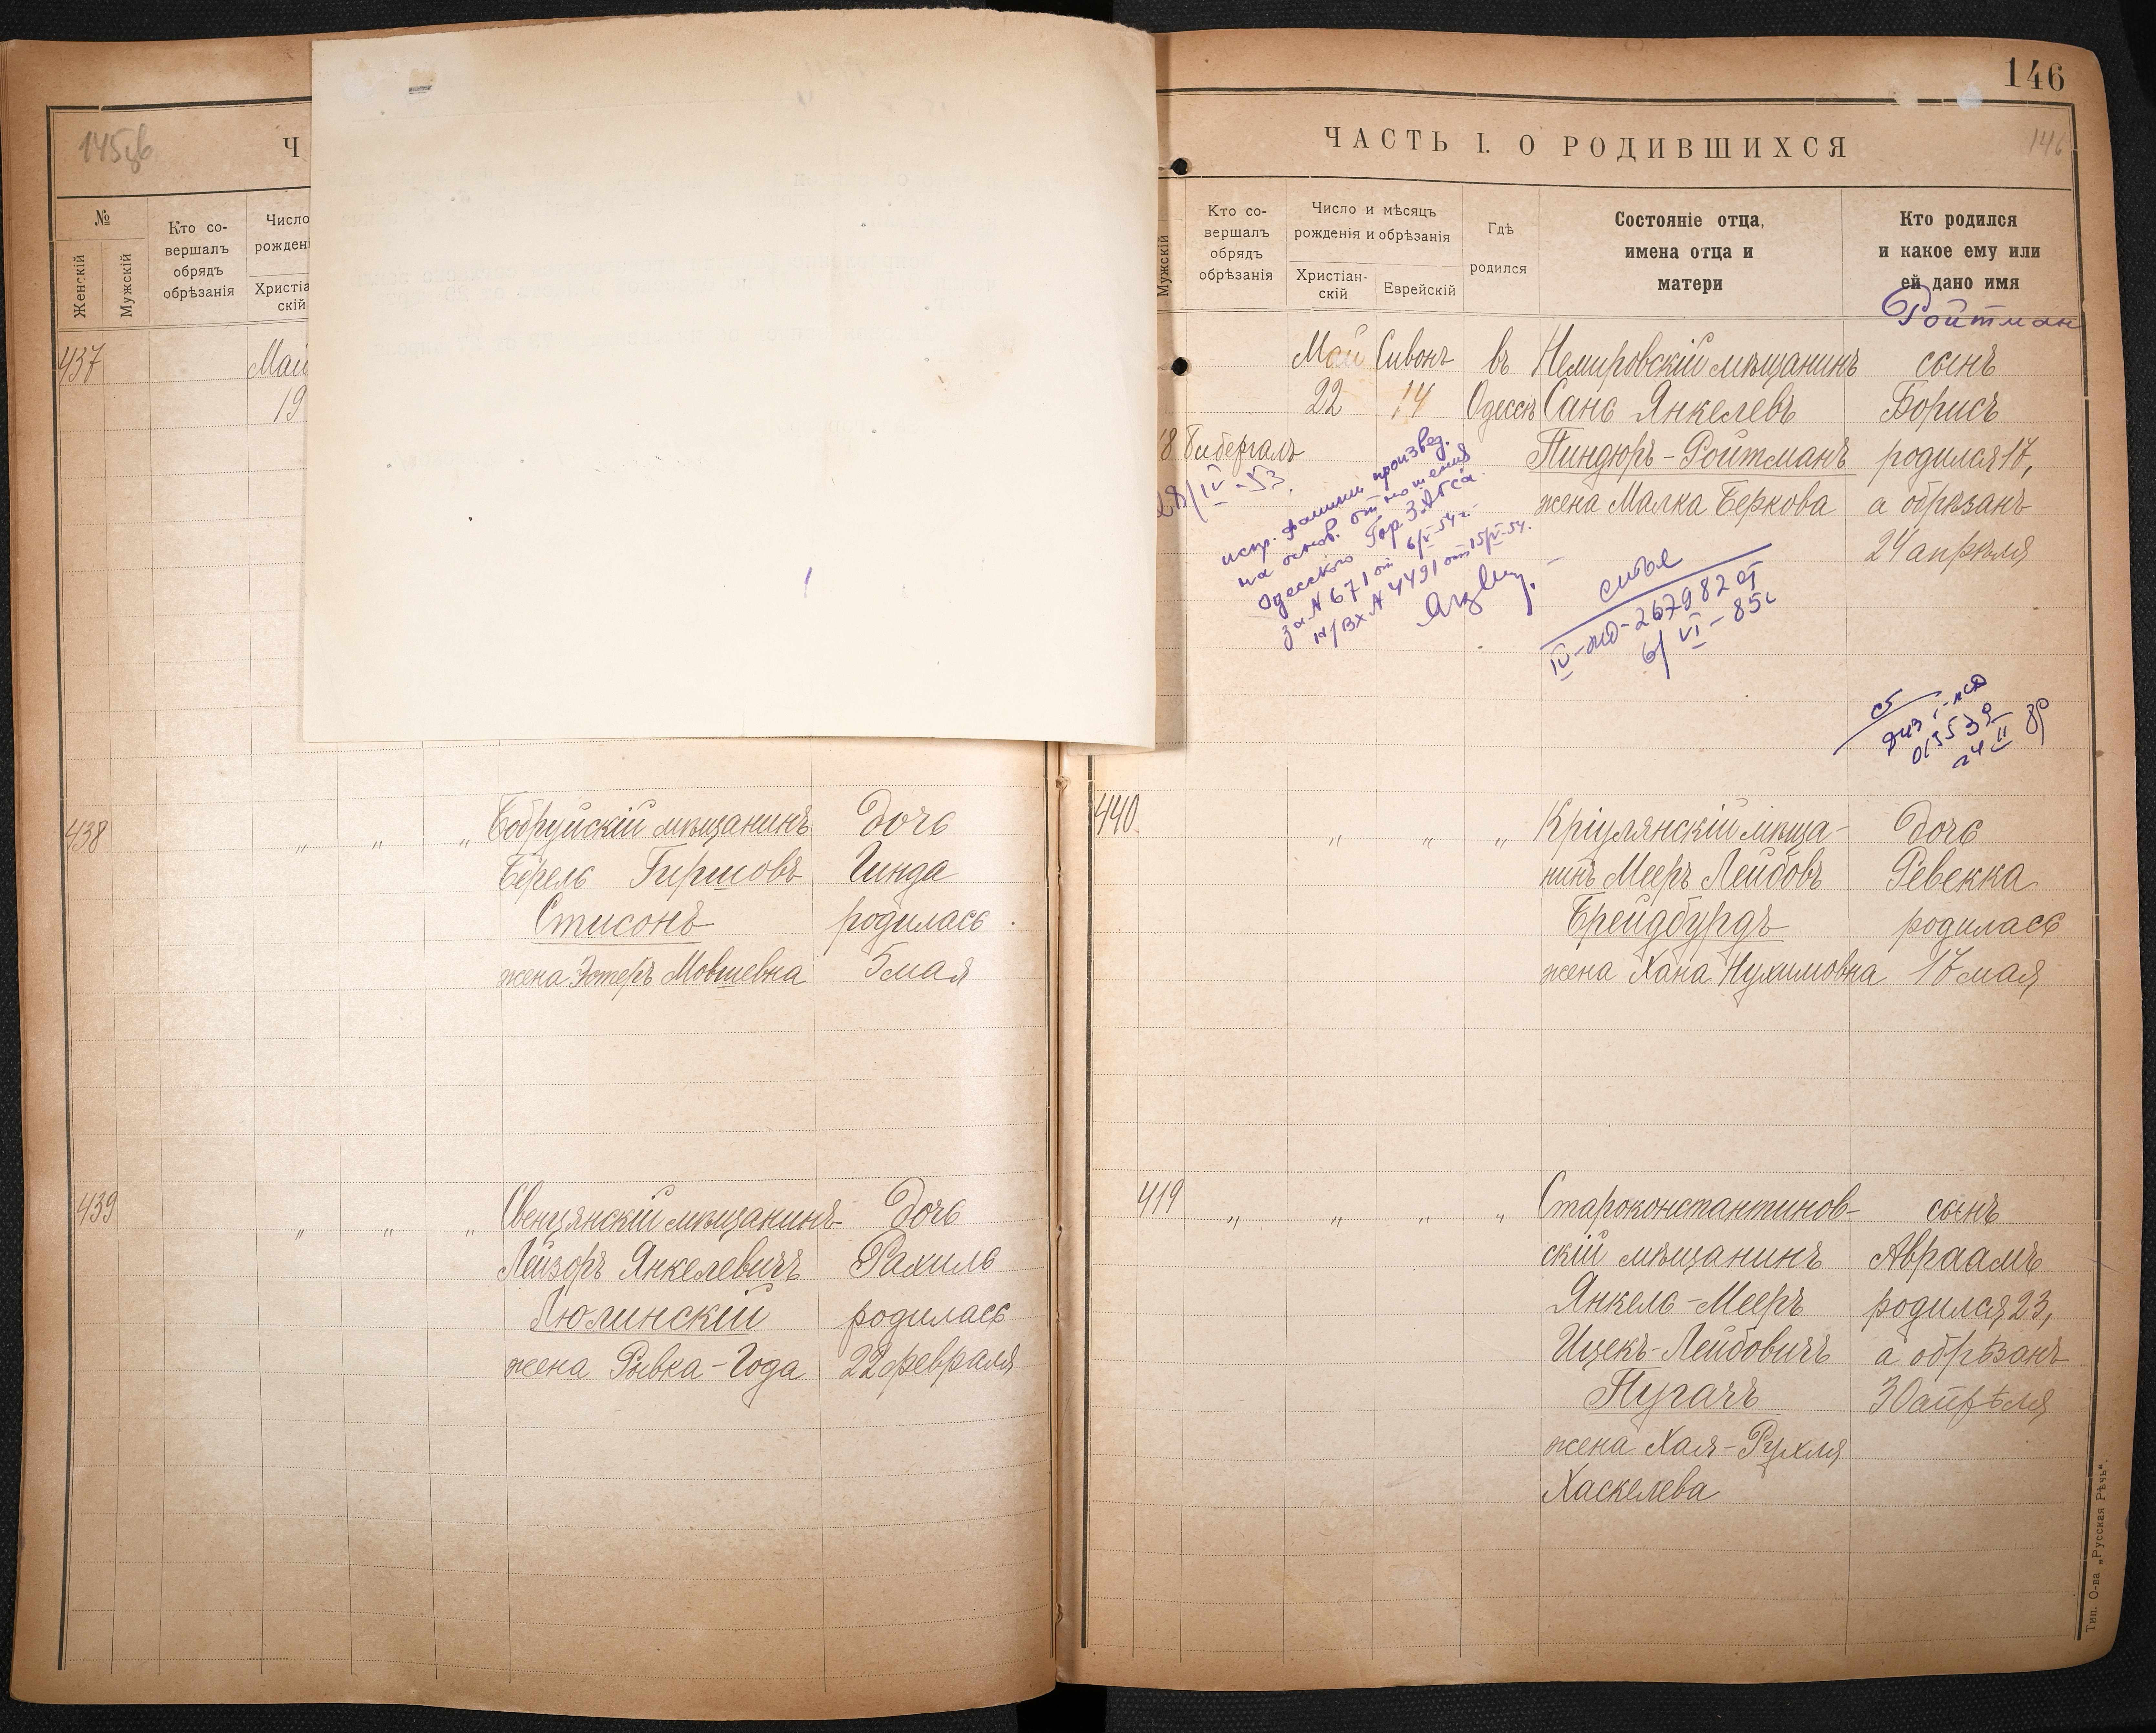 145об
Ч
№
Женскій
Мужскій
Кто со-
вершалъ
обрядъ
обрѣзанія
Число
рожден
Христіа
скій
437
Май
19
438 " " " Бобруйскій мѣщанинъ дочь
Берель Гиршовъ Гинда
Стисонъ родилась
жена Эстеръ Мовшевна 5 мая
439 " " " Свенцянскій мѣщанинъ дочь
Лейзоръ Янкелевичъ Рахиль
Люлинскій родилась
жена Рывка-Года 22 февраля
146
ЧАСТЬ I. О РОДИВШИХСЯ
146
Мужскій
Кто со-
вершалъ
обрядъ
обрѣзанія
Число и мѣсяцъ
рожденія и обрѣзанія
Христіан-
скій
Еврейскій
Гдѣ
родился
Состояніе отца,
имена отца и
матери
Кто родился
и какое ему или
ей дано имя
Ройтман
Май Сивонъ въ Немировскій мѣщанинъ сынъ
22 14 Одессѣ Сань Янкелевъ Борисъ
8 Бибергалъ Пиндюръ-Ройтманъ родился 17,
жена Малка Беркова а обрѣзанъ
24 апрѣля
28/IV-53
испр. фамилии произвед.
на основ. отношения
Одесского Гор ЗАГСа
за N 671 от 6/V-54 г.
н/вх N 4491 от 15/V-54.
IV-жд-267982 от
6/VI-85г
440 " " " Кріулянскій мѣща-
нинъ Мееръ Лейбовъ
Брейдбурдъ
жена Хана Нухимовна
дочь
Ревекка
родилась
17 мая
419 " " " " Староконстантинов-
скій мѣщанинъ
Янкель-Мееръ
Ицекъ-Лейбовичъ
Пугачъ
жена Хая-Рухля
Хаскелева
сынъ
Авраамъ
родился 23,
а обрѣзанъ
30 апрѣля
Тип. О-ва „Русская Рѣчь".